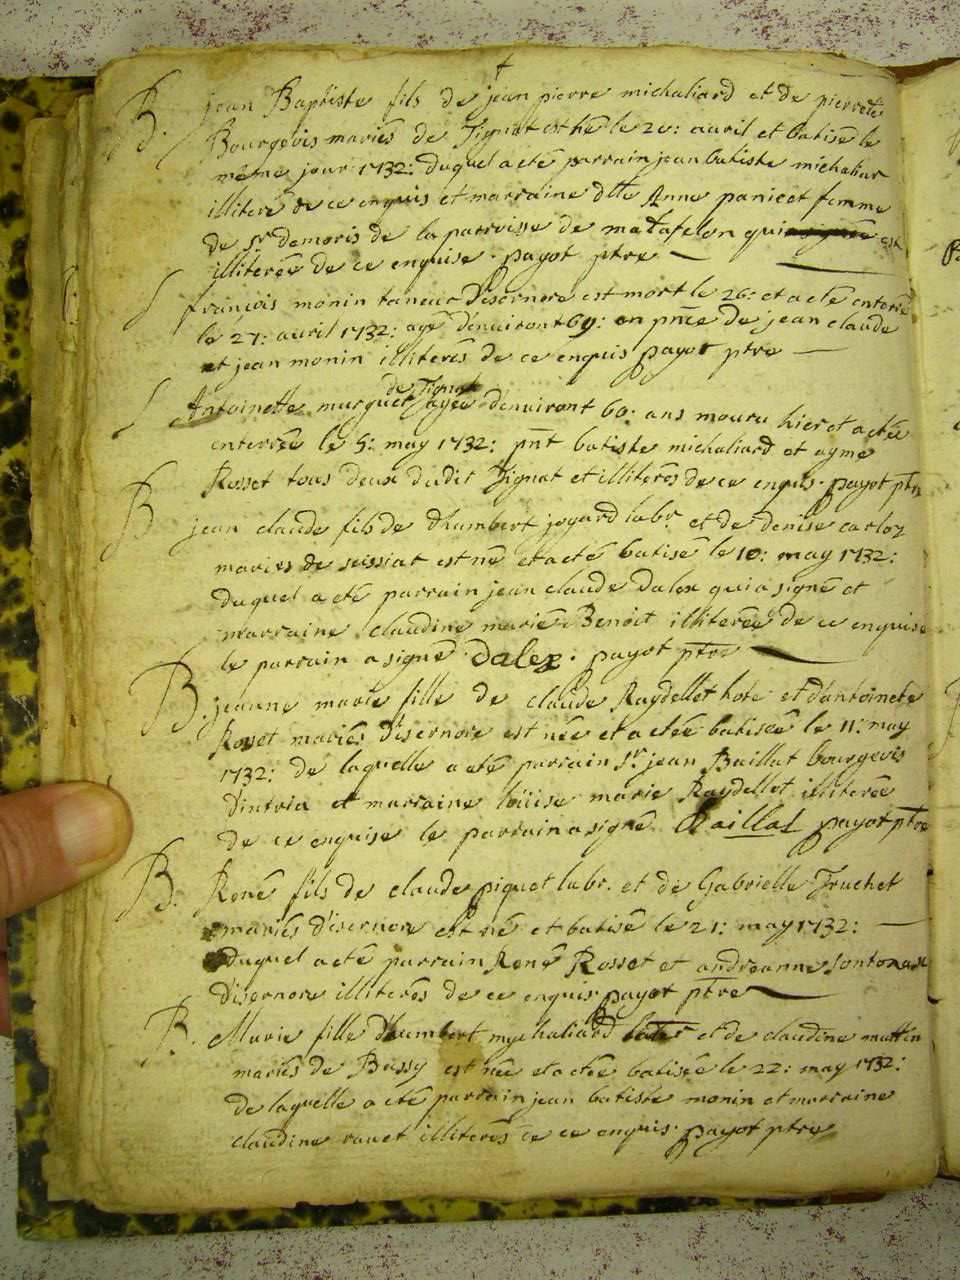 B. jean Baptiste fils de jean pierre michaliard et de pierrete
Bourgeois mariés de Tignat est né le 20: auril et batisé le
même jour 1732: duquel a eté parrain jean batiste michaliar
illiteré de ce enquis et marraine dlle Anne panicet femme
de sr demoris de la parroisse de matafelon qui est
illiterée de ce enquise. payot ptre
S francois monin taneur d'isernore est mort le 26: et a eté enterré
le 27: auril 1732: agé denuiront 69: en pnce de jean claude
et jean monin illiterés de ce enquis payot ptre
de Tignat
S Antoinette murguet agée denuiront 60: ans mouru hier et a eté
enterrée le 5: may 1732: pnt batiste michaliard et ayme
Rosset tous deux dudit Tignat et illiterés de ce enquis. payot ptre
B jean claude fils de d'humbert joyard labr. et de denise carloz
mariés de seissiat est né et a eté batisé le 10: may 1732:
duquel a eté parrain jean claude dalex qui a signé et
marraine claudine marie Benoit illiterée de ce enquise
le parrain a signé Dalex. payot ptre
B. jeanne marie fille de claude Raydellet hote et d'antoinete
Rosset mariés d'isernore est née et a eté batisée le 11: may
1732: de laquelle a eté parrain sr. jean Baillat bourgeois
D'intria et marraine loüise marie Raydellet illiterée
de ce enquise le parrain a signé Baillat payot ptre
B. René fils de claude piquet labr. et de Gabrielle Truchet
mariés d'isernore est né et batisé le 21: may 1732:
duquel a eté parrain René Rosset et andreanne
D'isernore illiterés de ce enquis payot ptre
B. Marie fille d'humbert mychaliard et de claudine mattin
mariés de Bussy est née et a eté batisée le 22: may 1732:
de laquelle a eté parrain jean batiste monin et marraine
claudine rauet illiterés de ce enquis. payot ptre